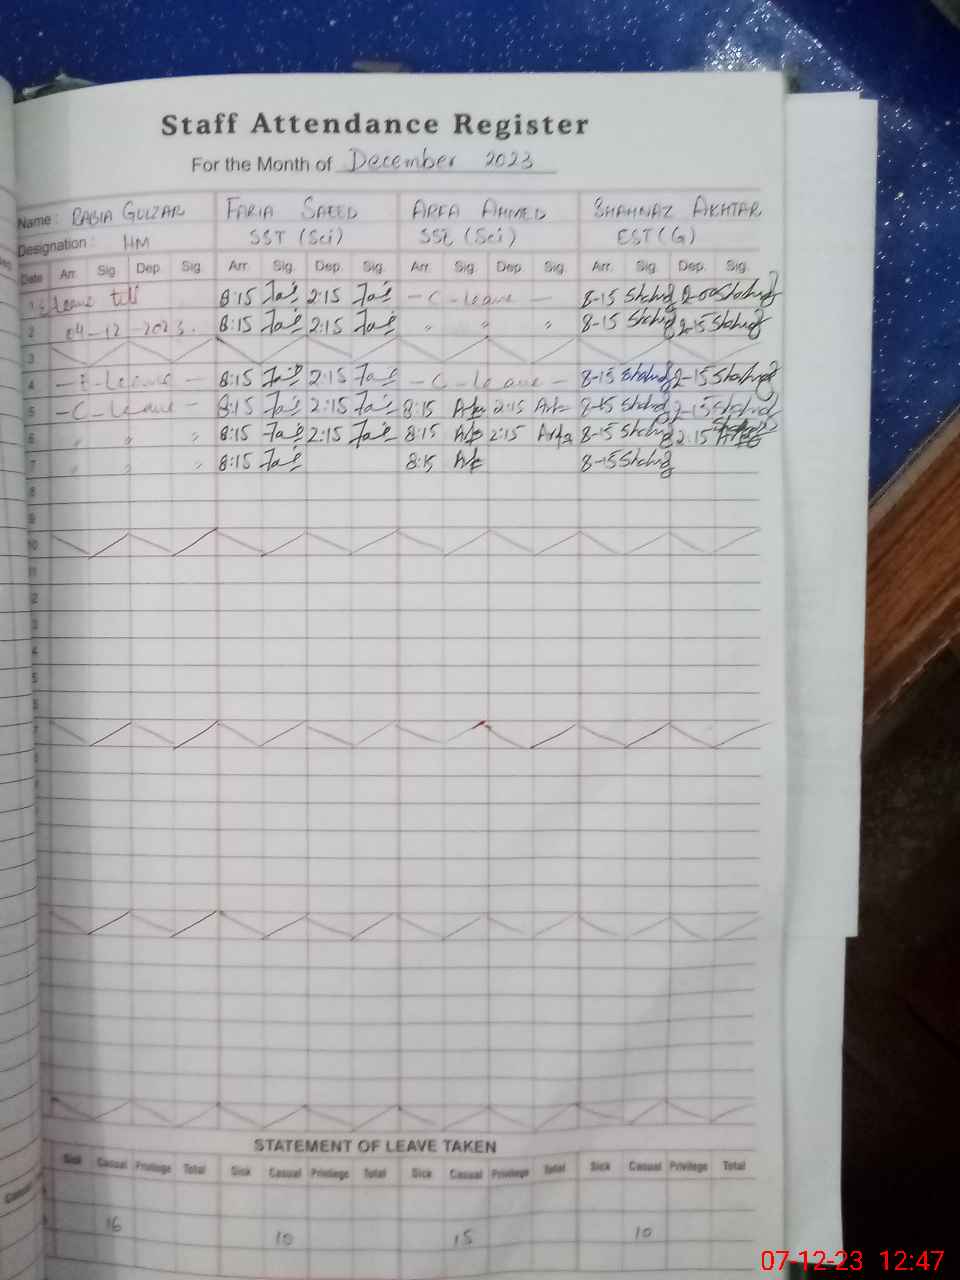 Staff Attendance Register
For the Month of December 2023
Name : RABIA GULZAR FARIA SAEED ARFA AHMED SHAHNAZ AKHTAR
Designation : HM SST (Sci) SSE (Sci) EST (G)
Date Arr. Sig. Dep. Sig. Arr. Sig. Dep. Sig. Arr. Sig. Dep. Sig. Arr. Sig. Dep. Sig.
1 E leave till 8:15 2:15 - C - leave - 8-15 2-00
2 04-12-2023. 8:15 2:15 " " " 8-15 2-15
3
4 - E - Leave - 8:15 2:15 - C - leave - 8-15 2-15
5 - C - Leave - 8:15 2:15 8:15 2:15 8-15 2-15
6 " " " 8:15 2:15 8:15 2:15 Arfa 8-15 2:15
7 " " " 8:15 8:15 8-15
8
9
10
11
2
3
4
5
6
7
STATEMENT OF LEAVE TAKEN
Sick Casual Privilege Total Sick Casual Privilege Total Sick Casual Privilege Total Sick Casual Privilege Total
16 10 15 10
07-12-23 12:47